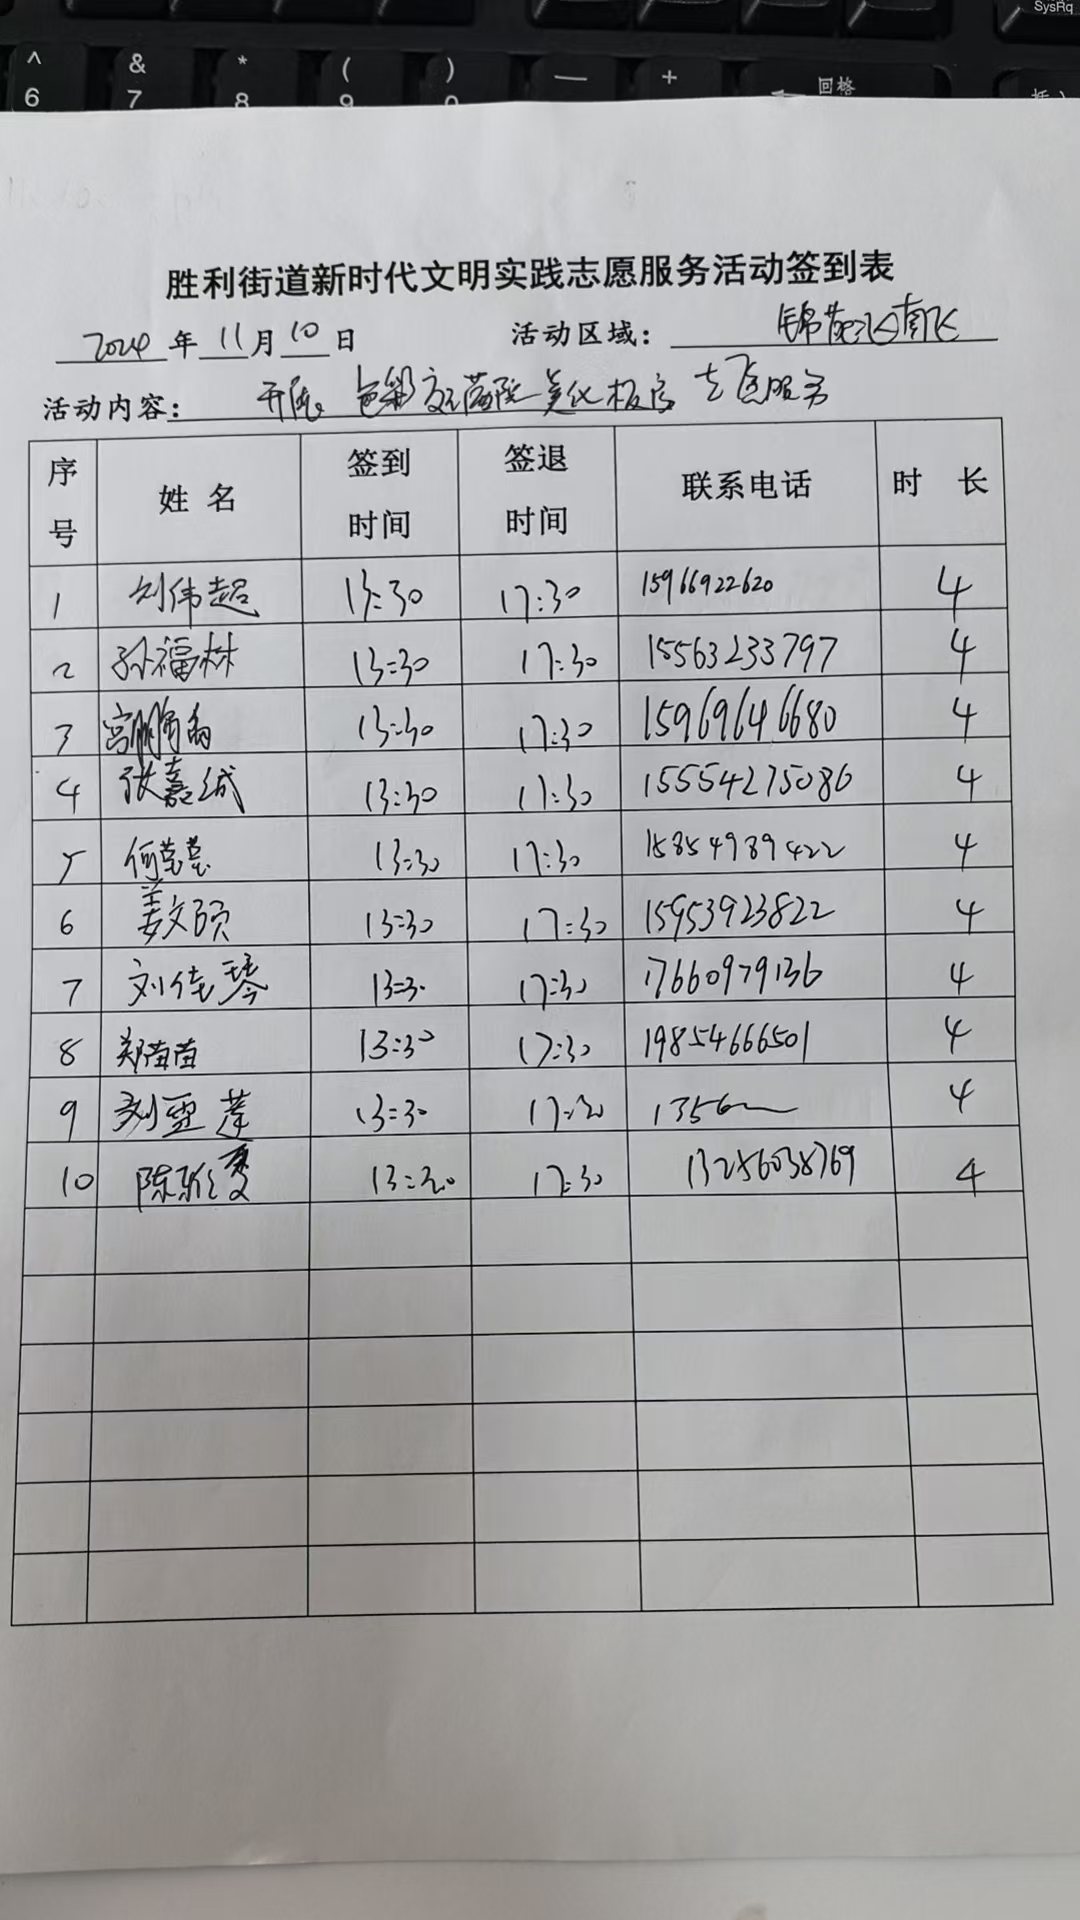 SysRq
^ & * ( ) — +
6 7 8 9 0 回格
胜利街道新时代文明实践志愿服务活动签到表
2024 年 11 月 10 日 活动区域:
活动内容: 开展 色彩 美化 志愿服务
序号 姓名 签到时间 签退时间 联系电话 时 长
1 刘伟超 13:30 17:30 15966922620 4
2 孙福林 13:30 17:30 15563233797 4
3 宫鹏 13:30 17:30 15969646680 4
4 张嘉诚 13:30 17:30 15554275086 4
5 何莹莹 13:30 17:30 15854989422 4
6 姜文硕 13:30 17:30 15953923822 4
7 刘佳琴 13:30 17:30 17660979136 4
8 郑苗苗 13:30 17:30 19854666501 4
9 刘亚莲 13:30 17:30 4
10 陈雅雯 13:30 17:30 13256038769 4